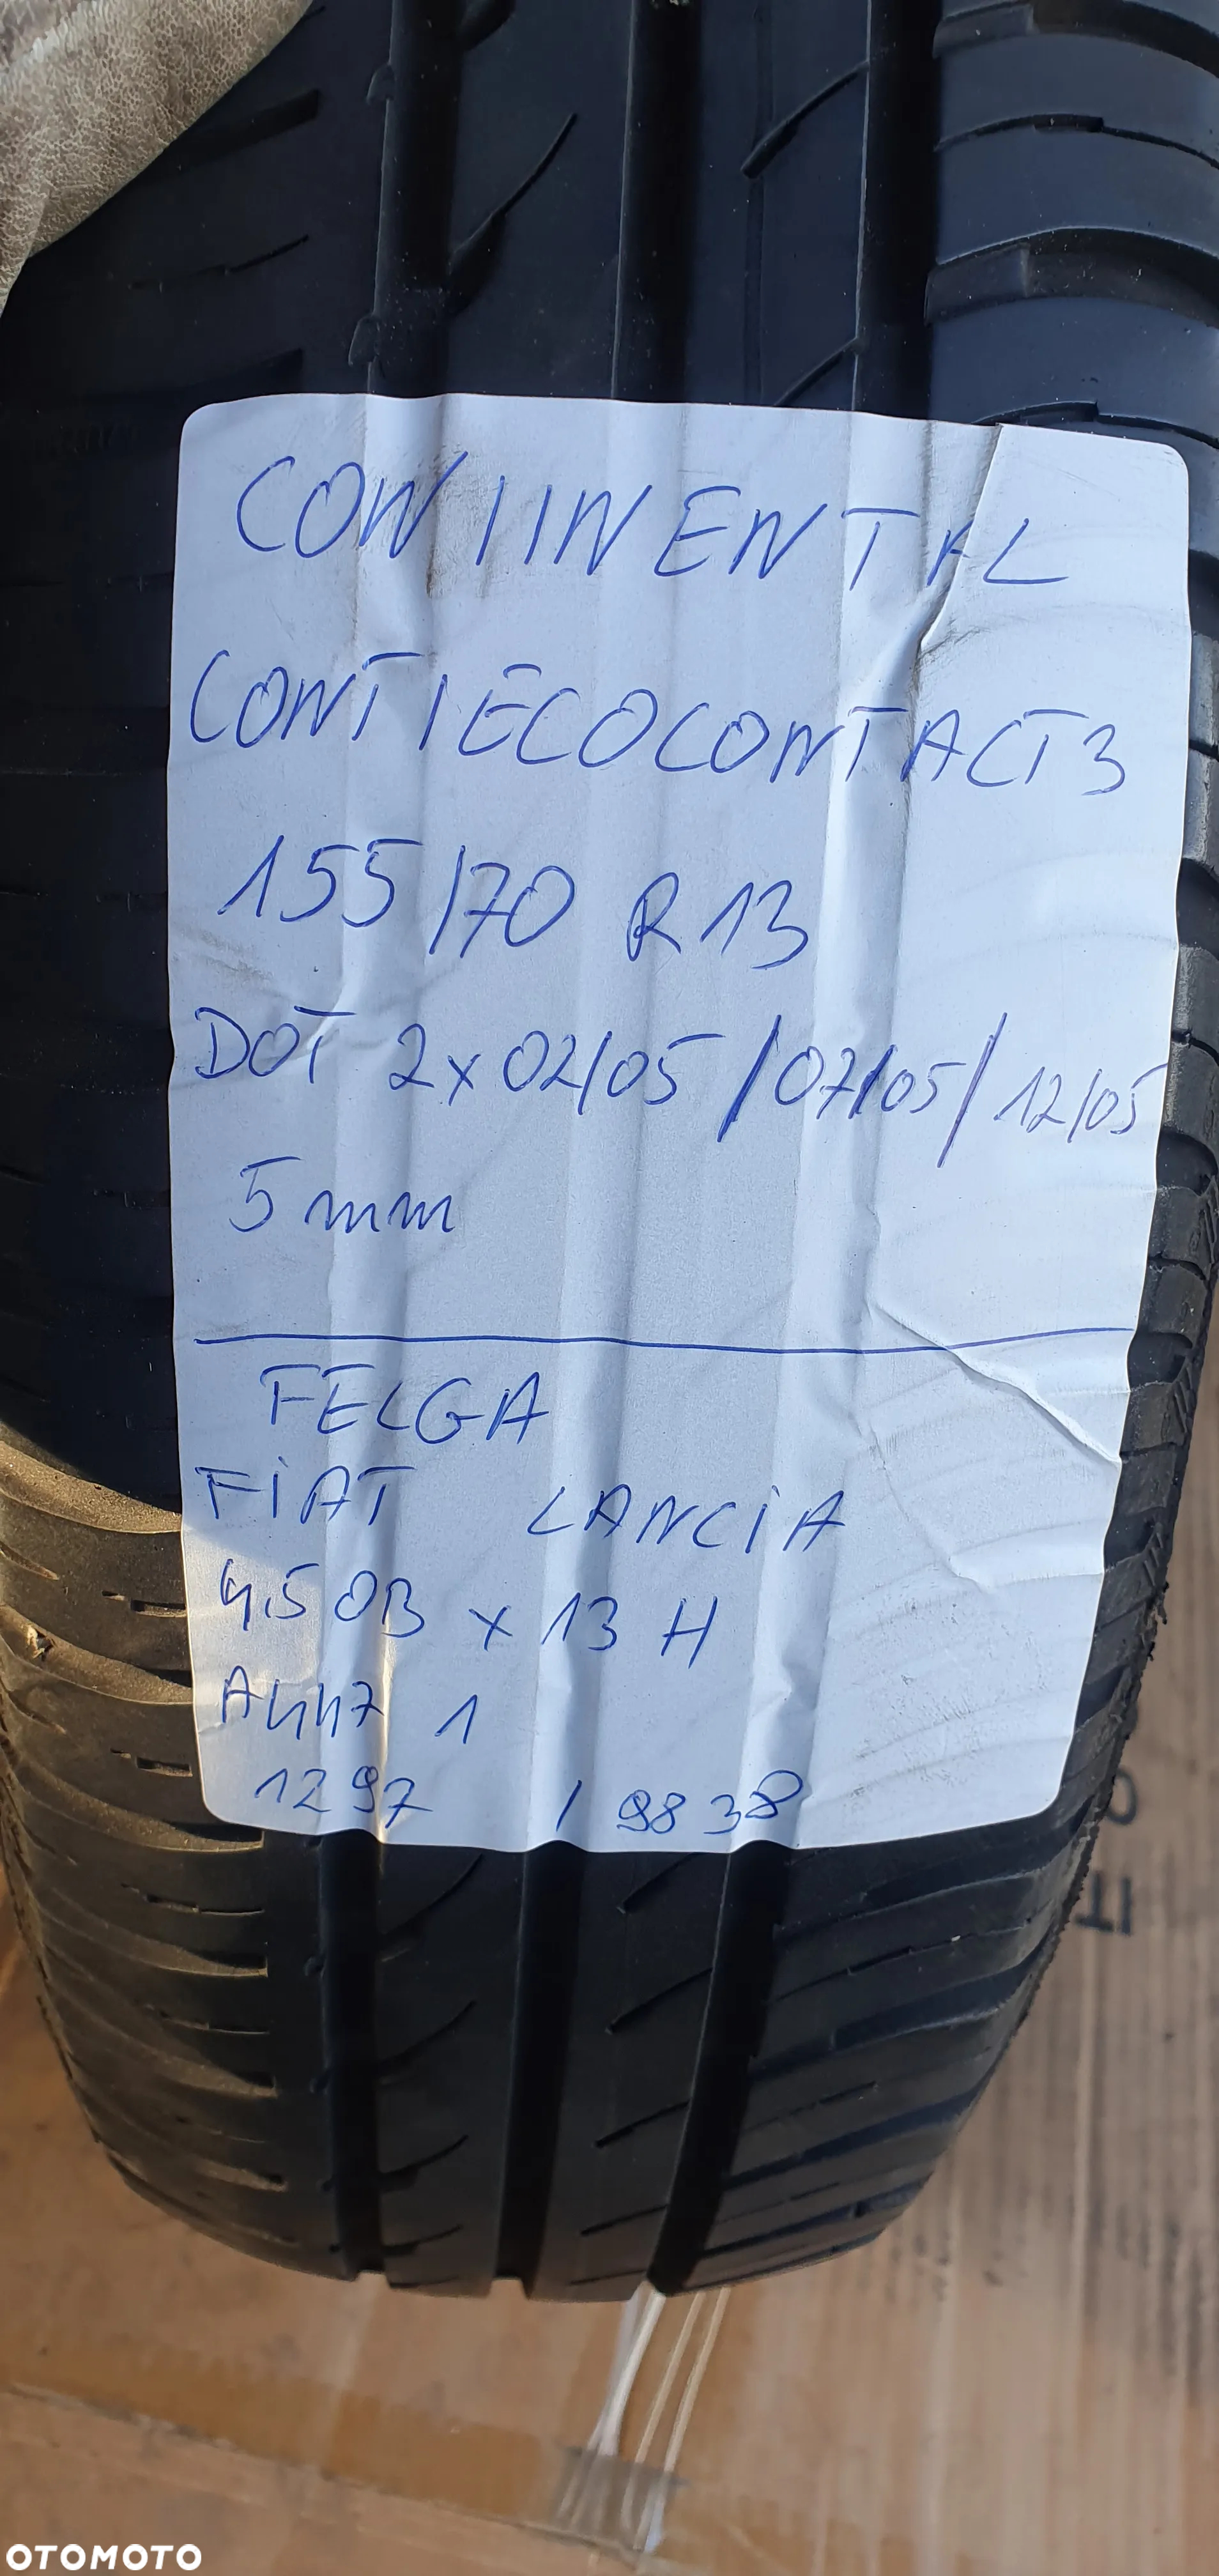 CONTINENTAL
CONTIECOCONTACT3
155/70 R13
DOT 2x02/05/07/05/12/05
5mm
FELGA
FIAT LANCIA
450B x 13 H
A447 1
1297 / 9838
OTOMOTO